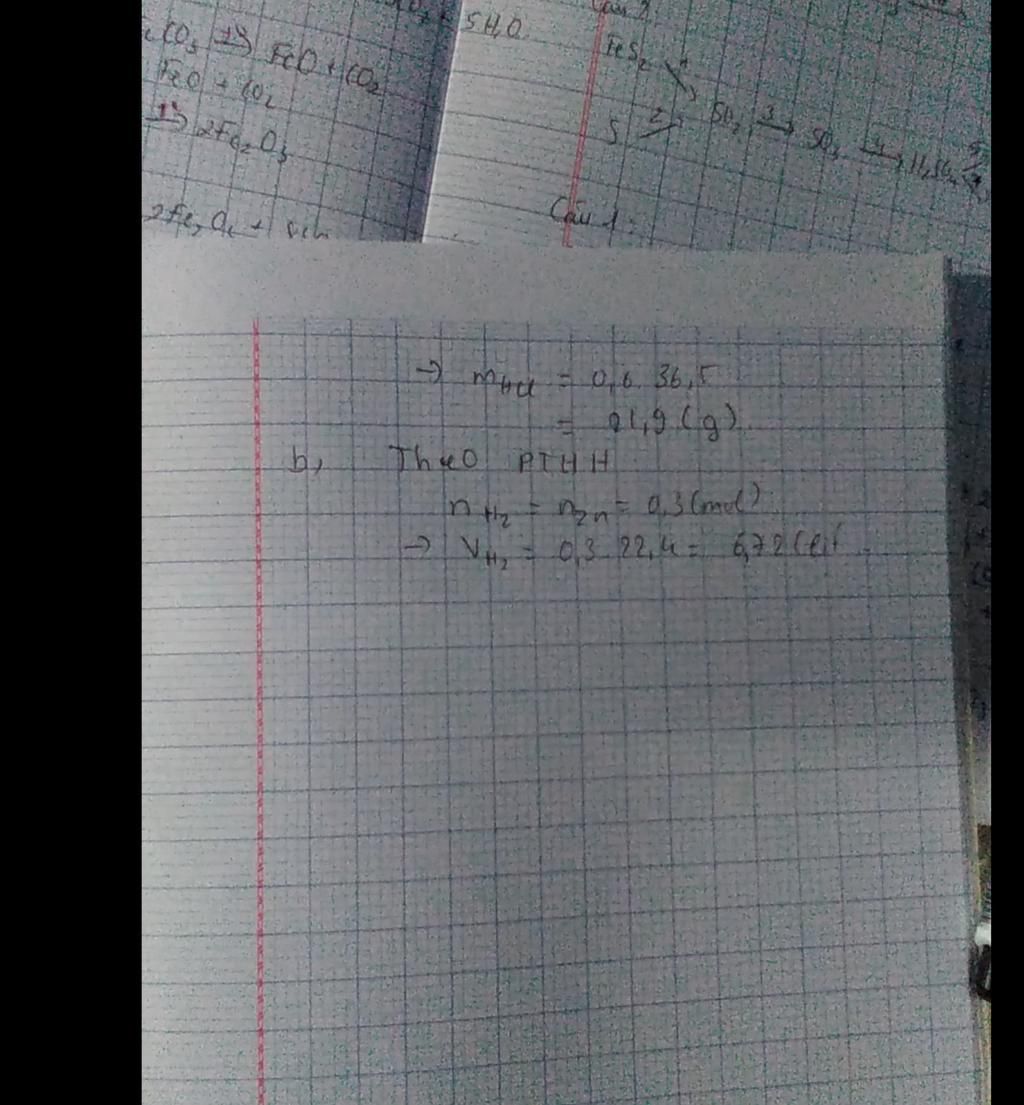 5H₂O
CO₃ t°→ FeO + CO₂
FeO + CO₂
t°→ 2Fe₂O₃
Câu 2
FeS₂
S 2→ SO₂ 3→ SO₃ 4→ H₂SO₄
Câu 1:
→ mHCl = 0,6 . 36,5
= 21,9 (g)
b, Theo PTHH
nH₂ = nZn = 0,3 (mol)
→ VH₂ = 0,3 . 22,4 = 6,72 (lít